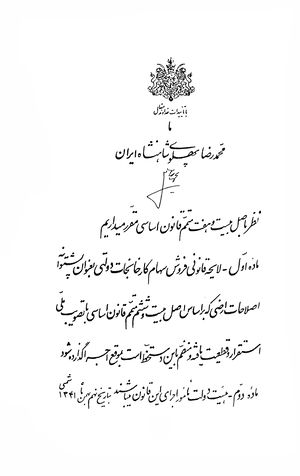 با تأییدات خداوند متعال
ما
محمدرضا پهلوی شاهنشاه ایران
نظر باصل بیست و هفتم متمم قانون اساسی مقرر میداریم
ماده اول - لایحه قانونی فروش سهام کارخانجات دولتی بعنوان پشتوانه
اصلاحات ارضی که بر اساس اصل بیست و ششم متمم قانون اساسی با تصویب ملی
استقرار و قطعیت یافته و منضم باین دستخط است بموقع اجرا گذارده شود
ماده دوم - هیئت دولت مأمور اجرای این قانون میباشند بتاریخ نهم بهمن ماه ۱۳۴۱ شمسی